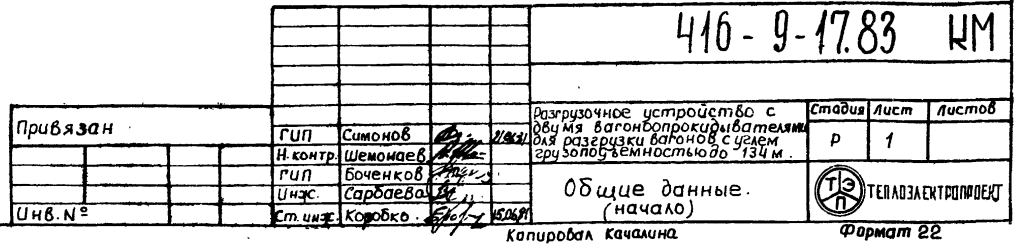 416-9-17.83 КМ
Привязан
Инв. №
ГИП Симонов
Н. контр. Шемонаев
ГИП Боченков
Инж. Сарбаева
Ст. инж. Коробко 15.06.91
Разгрузочное устройство с
двумя вагонопрокидывателями
для разгрузки вагонов с углем
грузоподъемностью до 134 м.
Стадия Лист Листов
Р 1
Общие данные.
(начало)
ТЭП ТЕПЛОЭЛЕКТРОПРОЕКТ
Копировал Качалина
Формат 22